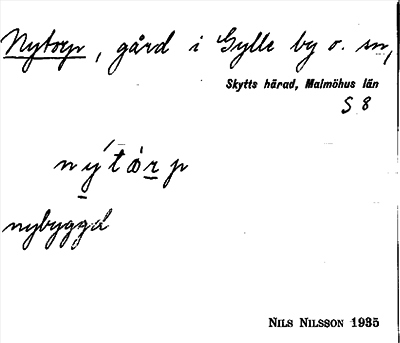 Nytorp, gård i Gylle by o. sn,
Skytts härad, Malmöhus län
S 8
nýtårp
nybyggd
NILS NILSSON 1935